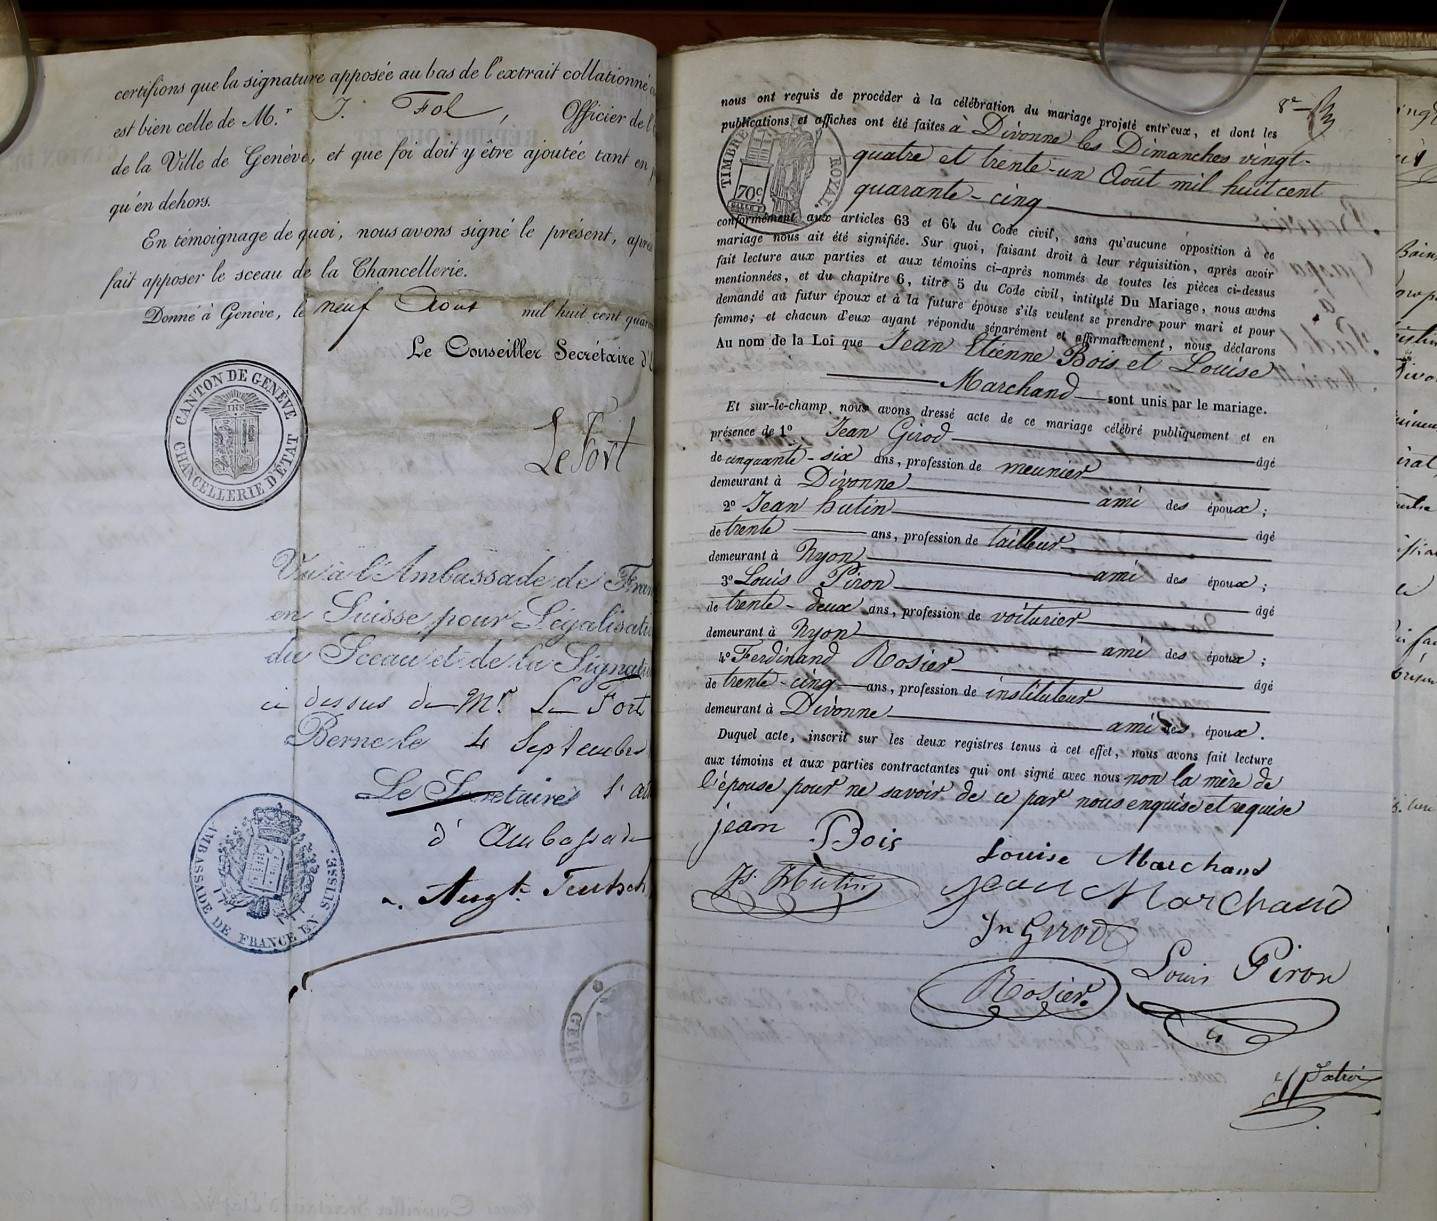 certifions que la signature apposée au bas de l'extrait collationné
est bien celle de M.r J. Fol, Officier de l'
de la Ville de Genève, et que foi doit y être ajoutée tant en
qu'en dehors.
En témoignage de quoi, nous avons signé le présent, après
fait apposer le sceau de la Chancellerie.
Donné à Genève, le neuf Aout mil huit cent quara
Le Conseiller Secrétaire d'
CANTON DE GENÈVE
CHANCELLERIE D'ÉTAT
Le Fort
Vu à l'Ambassade de Fran
en Suisse pour Légalisati
du Sceau et de la Signatu
ci dessus de Mr. Le Fort
Berne le 4 Septembre
Le Secretaire
d'Ambassade
AMBASSADE DE FRANCE EN SUISSE.
nous ont requis de procéder à la célébration du mariage projeté entr'eux, et dont les
publications et affiches ont été faites à Divonne les Dimanches vingt-
quatre et trente-un Aout mil huit cent
quarante-cinq
TIMBRE ROYAL.
70c
conformément aux articles 63 et 64 du Code civil, sans qu'aucune opposition à ce
mariage nous ait été signifiée. Sur quoi, faisant droit à leur réquisition, après avoir
fait lecture aux parties et aux témoins ci-après nommés de toutes les pièces ci-dessus
mentionnées, et du chapitre 6, titre 5 du Code civil, intitulé Du Mariage, nous avons
demandé au futur époux et à la future épouse s'ils veulent se prendre pour mari et pour
femme; et chacun d'eux ayant répondu séparément et affirmativement, nous déclarons
Au nom de la Loi que Jean Etienne Bois et Louise
Marchand sont unis par le mariage.
Et sur-le-champ, nous avons dressé acte de ce mariage célébré publiquement et en
présence de 1o Jean Girod âgé
de cinquante-six ans, profession de meunier
demeurant à Divonne ami des époux;
2o Jean hutin âgé
de trente ans, profession de tailleur
demeurant à Nyon ami des époux;
3o Louis Piron âgé
de trente-deux ans, profession de voiturier
demeurant à Nyon ami des époux;
4o Ferdinand Rosier âgé
de trente-cinq ans, profession de instituteur
demeurant à Divonne ami des époux.
Duquel acte, inscrit sur les deux registres tenus à cet effet, nous avons fait lecture
aux témoins et aux parties contractantes qui ont signé avec nous non la mère de
l'épouse pour ne savoir de ce par nous enquise et requise
jean Bois
Louise Marchand
Js. Hutin
jean Marchand
Jn Girod
Rosier
Louis Piron